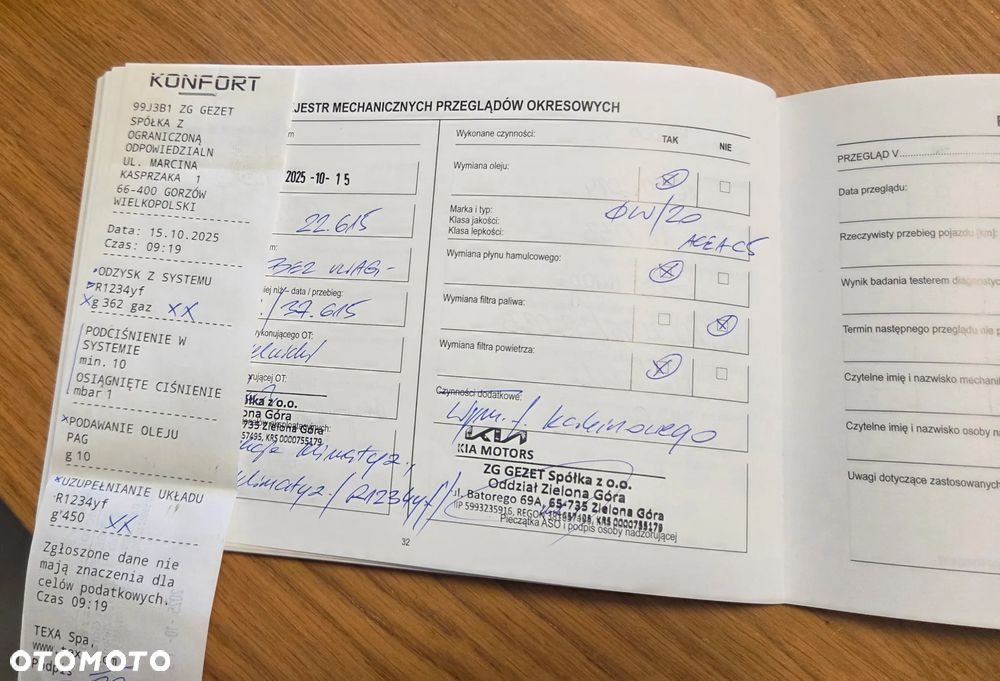 KONFORT
99J3B1 ZG GEZET
SPÓŁKA Z
OGRANICZONĄ
ODPOWIEDZIALN
UL. MARCINA
KASPRZAKA 1
66-400 GORZÓW
WIELKOPOLSKI
Data: 15.10.2025
Czas: 09:19
ODZYSK Z SYSTEMU
R1234yf
g 362 gaz XX
PODCIŚNIENIE W
SYSTEMIE
min. 10
OSIĄGNIĘTE CIŚNIENIE
mbar 1
PODAWANIE OLEJU
PAG
g 10
UZUPEŁNIANIE UKŁADU
R1234yf
g 450 XX
Zgłoszone dane nie
mają znaczenia dla
celów podatkowych.
Czas 09:19
TEXA Spa,
Podpis
OTOMOTO
JESTR MECHANICZNYCH PRZEGLĄDÓW OKRESOWYCH
2025-10-15
22.615
BEZ UWAG-
iej niż - data / przebieg:
/ 37.615
ykonującego OT:
orującej OT:
Spółka z o.o.
ona Góra
735 Zielona Góra
57495, KRS 0000755179
klimatyz.,
klimatyz. / R1234yf /
32
Wykonane czynności:
TAK
NIE
Wymiana oleju:
Marka i typ:
Klasa jakości:
Klasa lepkości:
0W/20
ACEA C5
Wymiana płynu hamulcowego:
Wymiana filtra paliwa:
Wymiana filtra powietrza:
Czynności dodatkowe:
Wym. f. kabinowego
KIA
KIA MOTORS
ZG GEZET Spółka z o.o.
Oddział Zielona Góra
ul. Batorego 69A, 65-735 Zielona Góra
NIP 5993235916, REGON 381657495, KRS 0000755179
Pieczątka ASO i podpis osoby nadzorującej
PRZEGLĄD V
Data przeglądu:
Rzeczywisty przebieg pojazdu [km]:
Wynik badania testerem diagnostyc
Termin następnego przeglądu nie p
Czytelne imię i nazwisko mechanik
Czytelne imię i nazwisko osoby na
Uwagi dotyczące zastosowanych